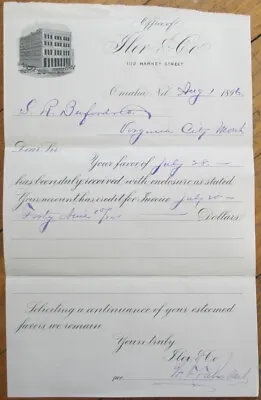 Office of
Iler & Co
1112 HARNEY STREET.
Omaha, Neb Aug 1 1896
S. R. Buford & Co
Virginia City Mont
Dear Sir:
Your favor of July 28
has been duly received with enclosure as stated
Your account has credit for Invoice July 20
Forty Nine Dollars.
Soliciting a continuance of your esteemed
favors we remain
Yours truly
Iler & Co
per